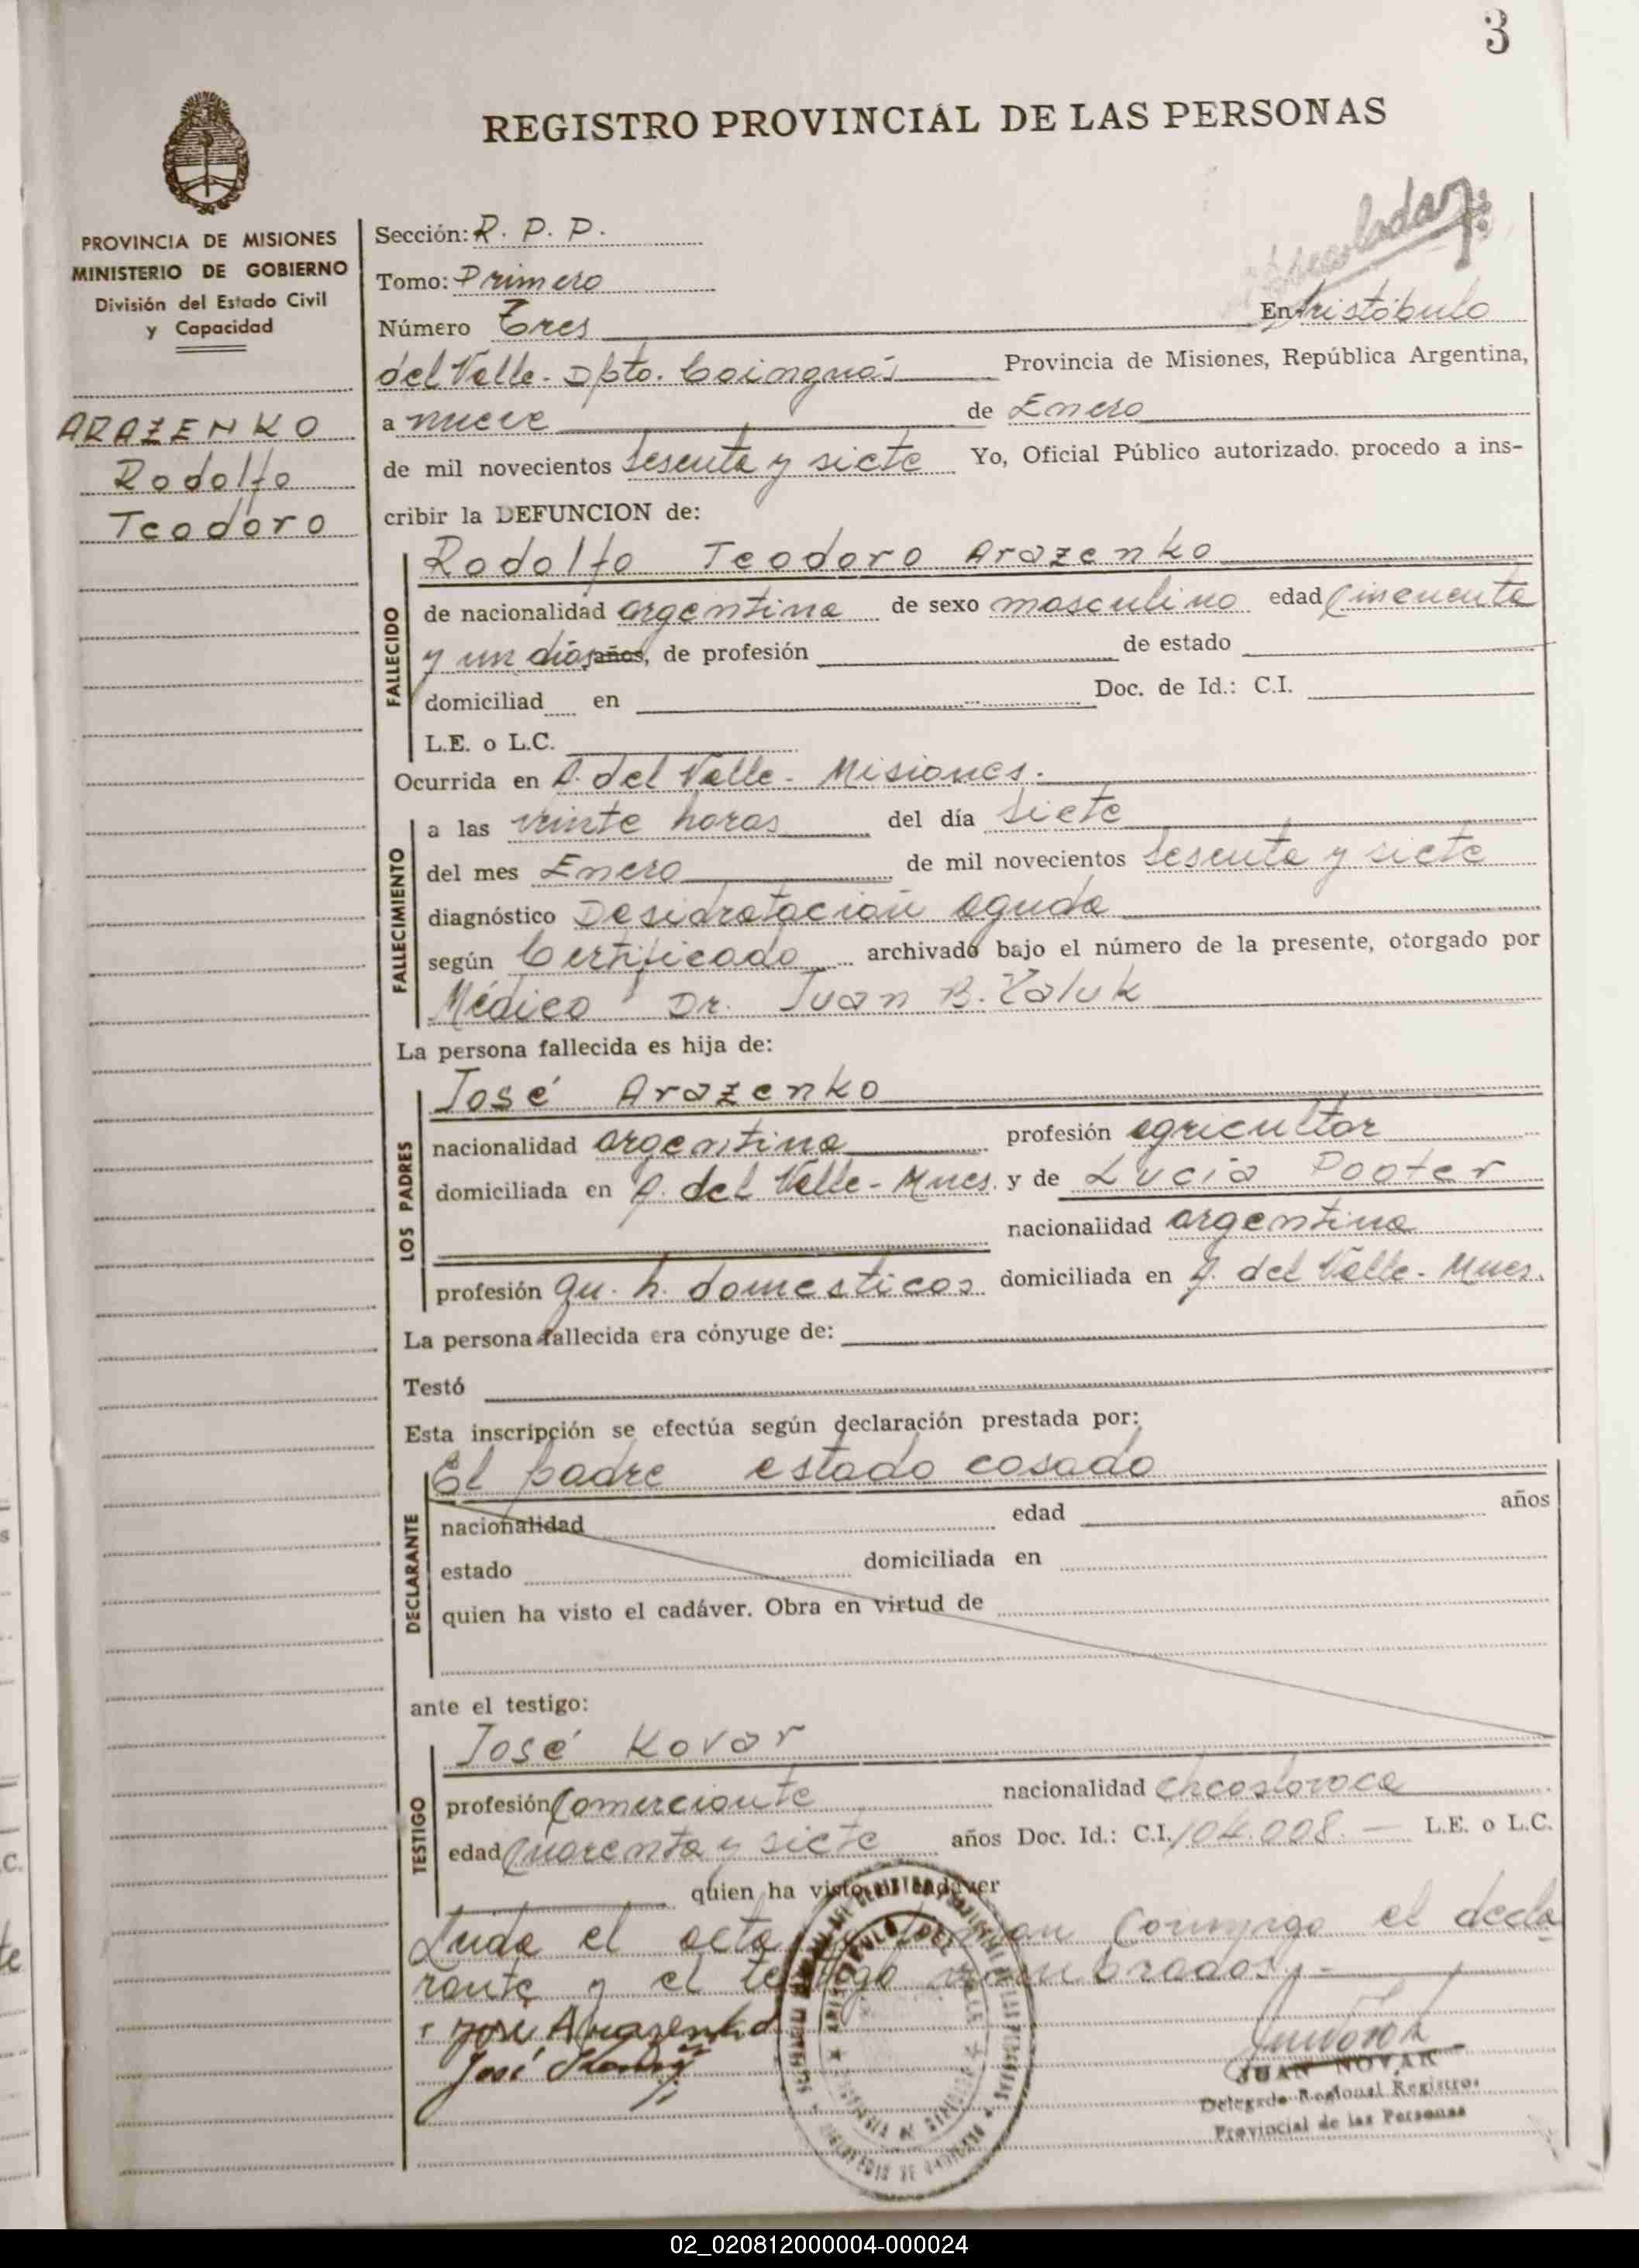 3
REGISTRO PROVINCIAL DE LAS PERSONAS
PROVINCIA DE MISIONES
MINISTERIO DE GOBIERNO
División del Estado Civil
y Capacidad
ARAZENKO
Rodolfo
Teodoro
Sección: R. P. P.
Tomo: Primero
Número Tres En Aristóbulo
del Valle - Dpto. Cainguás Provincia de Misiones, República Argentina,
a nueve de Enero
de mil novecientos sesenta y siete Yo, Oficial Público autorizado. procedo a ins-
cribir la DEFUNCION de:
FALLECIDO
Rodolfo Teodoro Arazenko
de nacionalidad argentina de sexo masculino edad Cincuenta
y un días años, de profesión de estado
domiciliad en Doc. de Id.: C.I.
L.E. o L.C.
Ocurrida en A. del Valle - Misiones.
FALLECIMIENTO
a las veinte horas del día siete
del mes Enero de mil novecientos sesenta y siete
diagnóstico Desidratación aguda
según Certificado archivado bajo el número de la presente, otorgado por
Médico Dr. Juan B. Zaluk
La persona fallecida es hija de:
LOS PADRES
José Arazenko
nacionalidad argentina profesión agricultor
domiciliada en A. del Valle - Mnes. y de Lucía Pooter
nacionalidad argentina
profesión qu. h. domesticos domiciliada en A. del Valle - Mnes.
La persona fallecida era cónyuge de:
Testó
Esta inscripción se efectúa según declaración prestada por:
DECLARANTE
El padre estado casado
nacionalidad edad años
estado domiciliada en
quien ha visto el cadáver. Obra en virtud de
ante el testigo:
TESTIGO
José Kovar
profesión Comerciante nacionalidad checoslovaca
edad Cuarenta y siete años Doc. Id.: C.I. 104.008. — L.E. o L.C.
quien ha visto el cadáver
Leida el acta la firman conmigo el decla
rante y el testigo nombrados.-
José Arazenko
José
JUAN NOVAK
Delegado Regional Registro
Provincial de las Personas
02_020812000004-000024